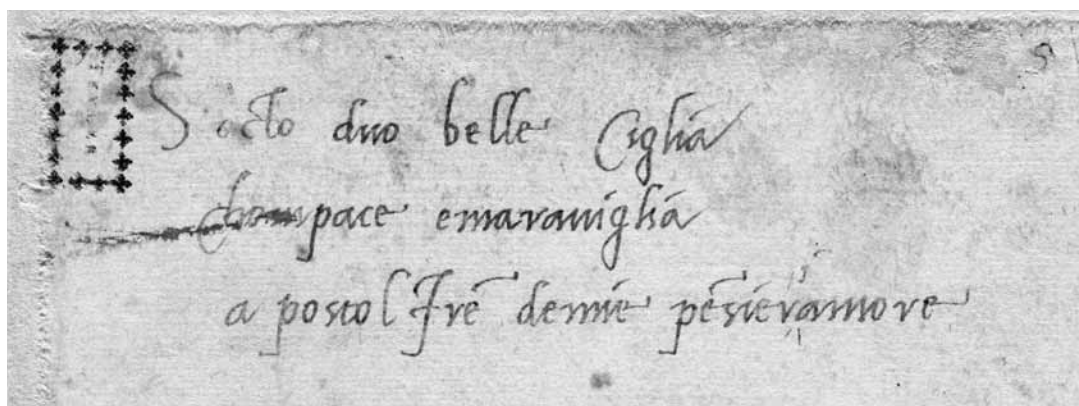 Socto duo belle Ciglia
chompace emaraviglia
a postol fre demie pēsieramore